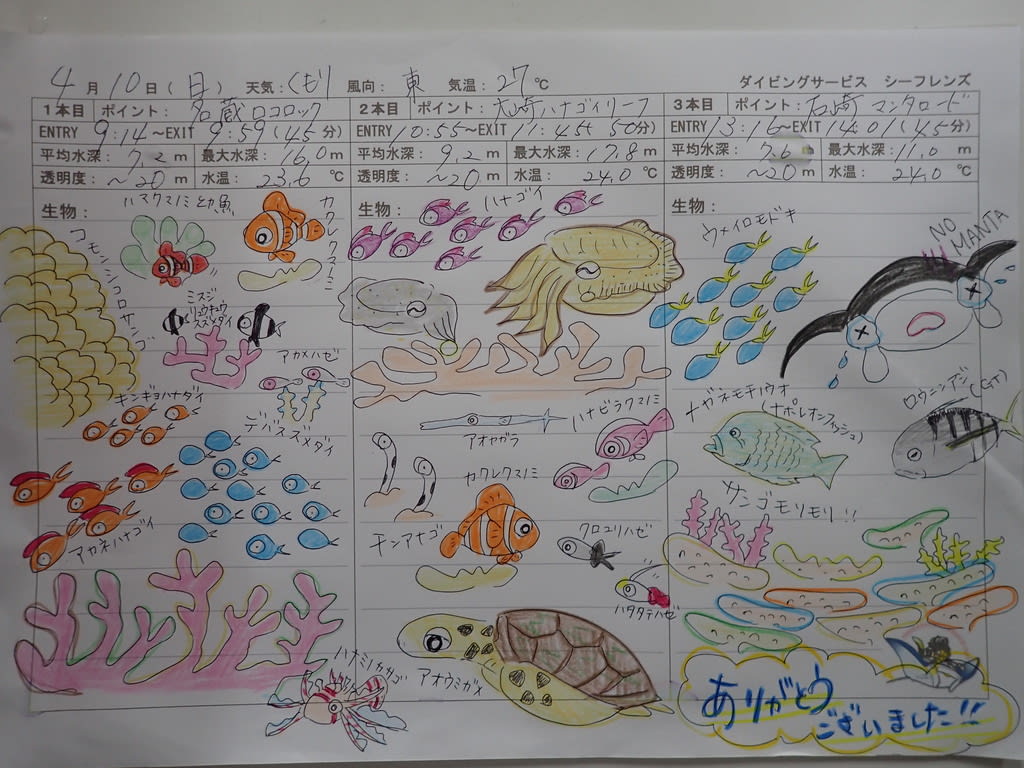 4月10日(日) 天気:くもり 風向:東 気温:27℃ ダイビングサービス シーフレンズ
1本目 ポイント:名蔵ロコロック
ENTRY 9:14~EXIT 9:59(45分)
平均水深:7.2m 最大水深:16.0m
透明度:~20m 水温:23.6℃
生物:
ハマクマノミ幼魚
カクレクマノミ
コモンシコロサンゴ
ミスジリュウキュウスズメダイ
アカメハゼ
キンギョハナダイ
デバスズメダイ
アカネハナゴイ
ハナミノカサゴ
2本目 ポイント:大崎ハナゴイリーフ
ENTRY 10:55~EXIT 11:45(50分)
平均水深:9.2m 最大水深:17.8m
透明度:~20m 水温:24.0℃
生物:
ハナゴイ
アオヤガラ
ハナビラクマノミ
カクレクマノミ
チンアナゴ
クロユリハゼ
ハタタテハゼ
アオウミガメ
3本目 ポイント:石崎マンタロード
ENTRY 13:16~EXIT 14:01(45分)
平均水深:7.6m 最大水深:11.0m
透明度:~20m 水温:24.0℃
生物:
ウメイロモドキ
NO MANTA
メガネモチノウオ
(ナポレオンフィッシュ)
ロウニンアジ(GT)
サンゴモリモリ!!
ありがとう
ございました!!